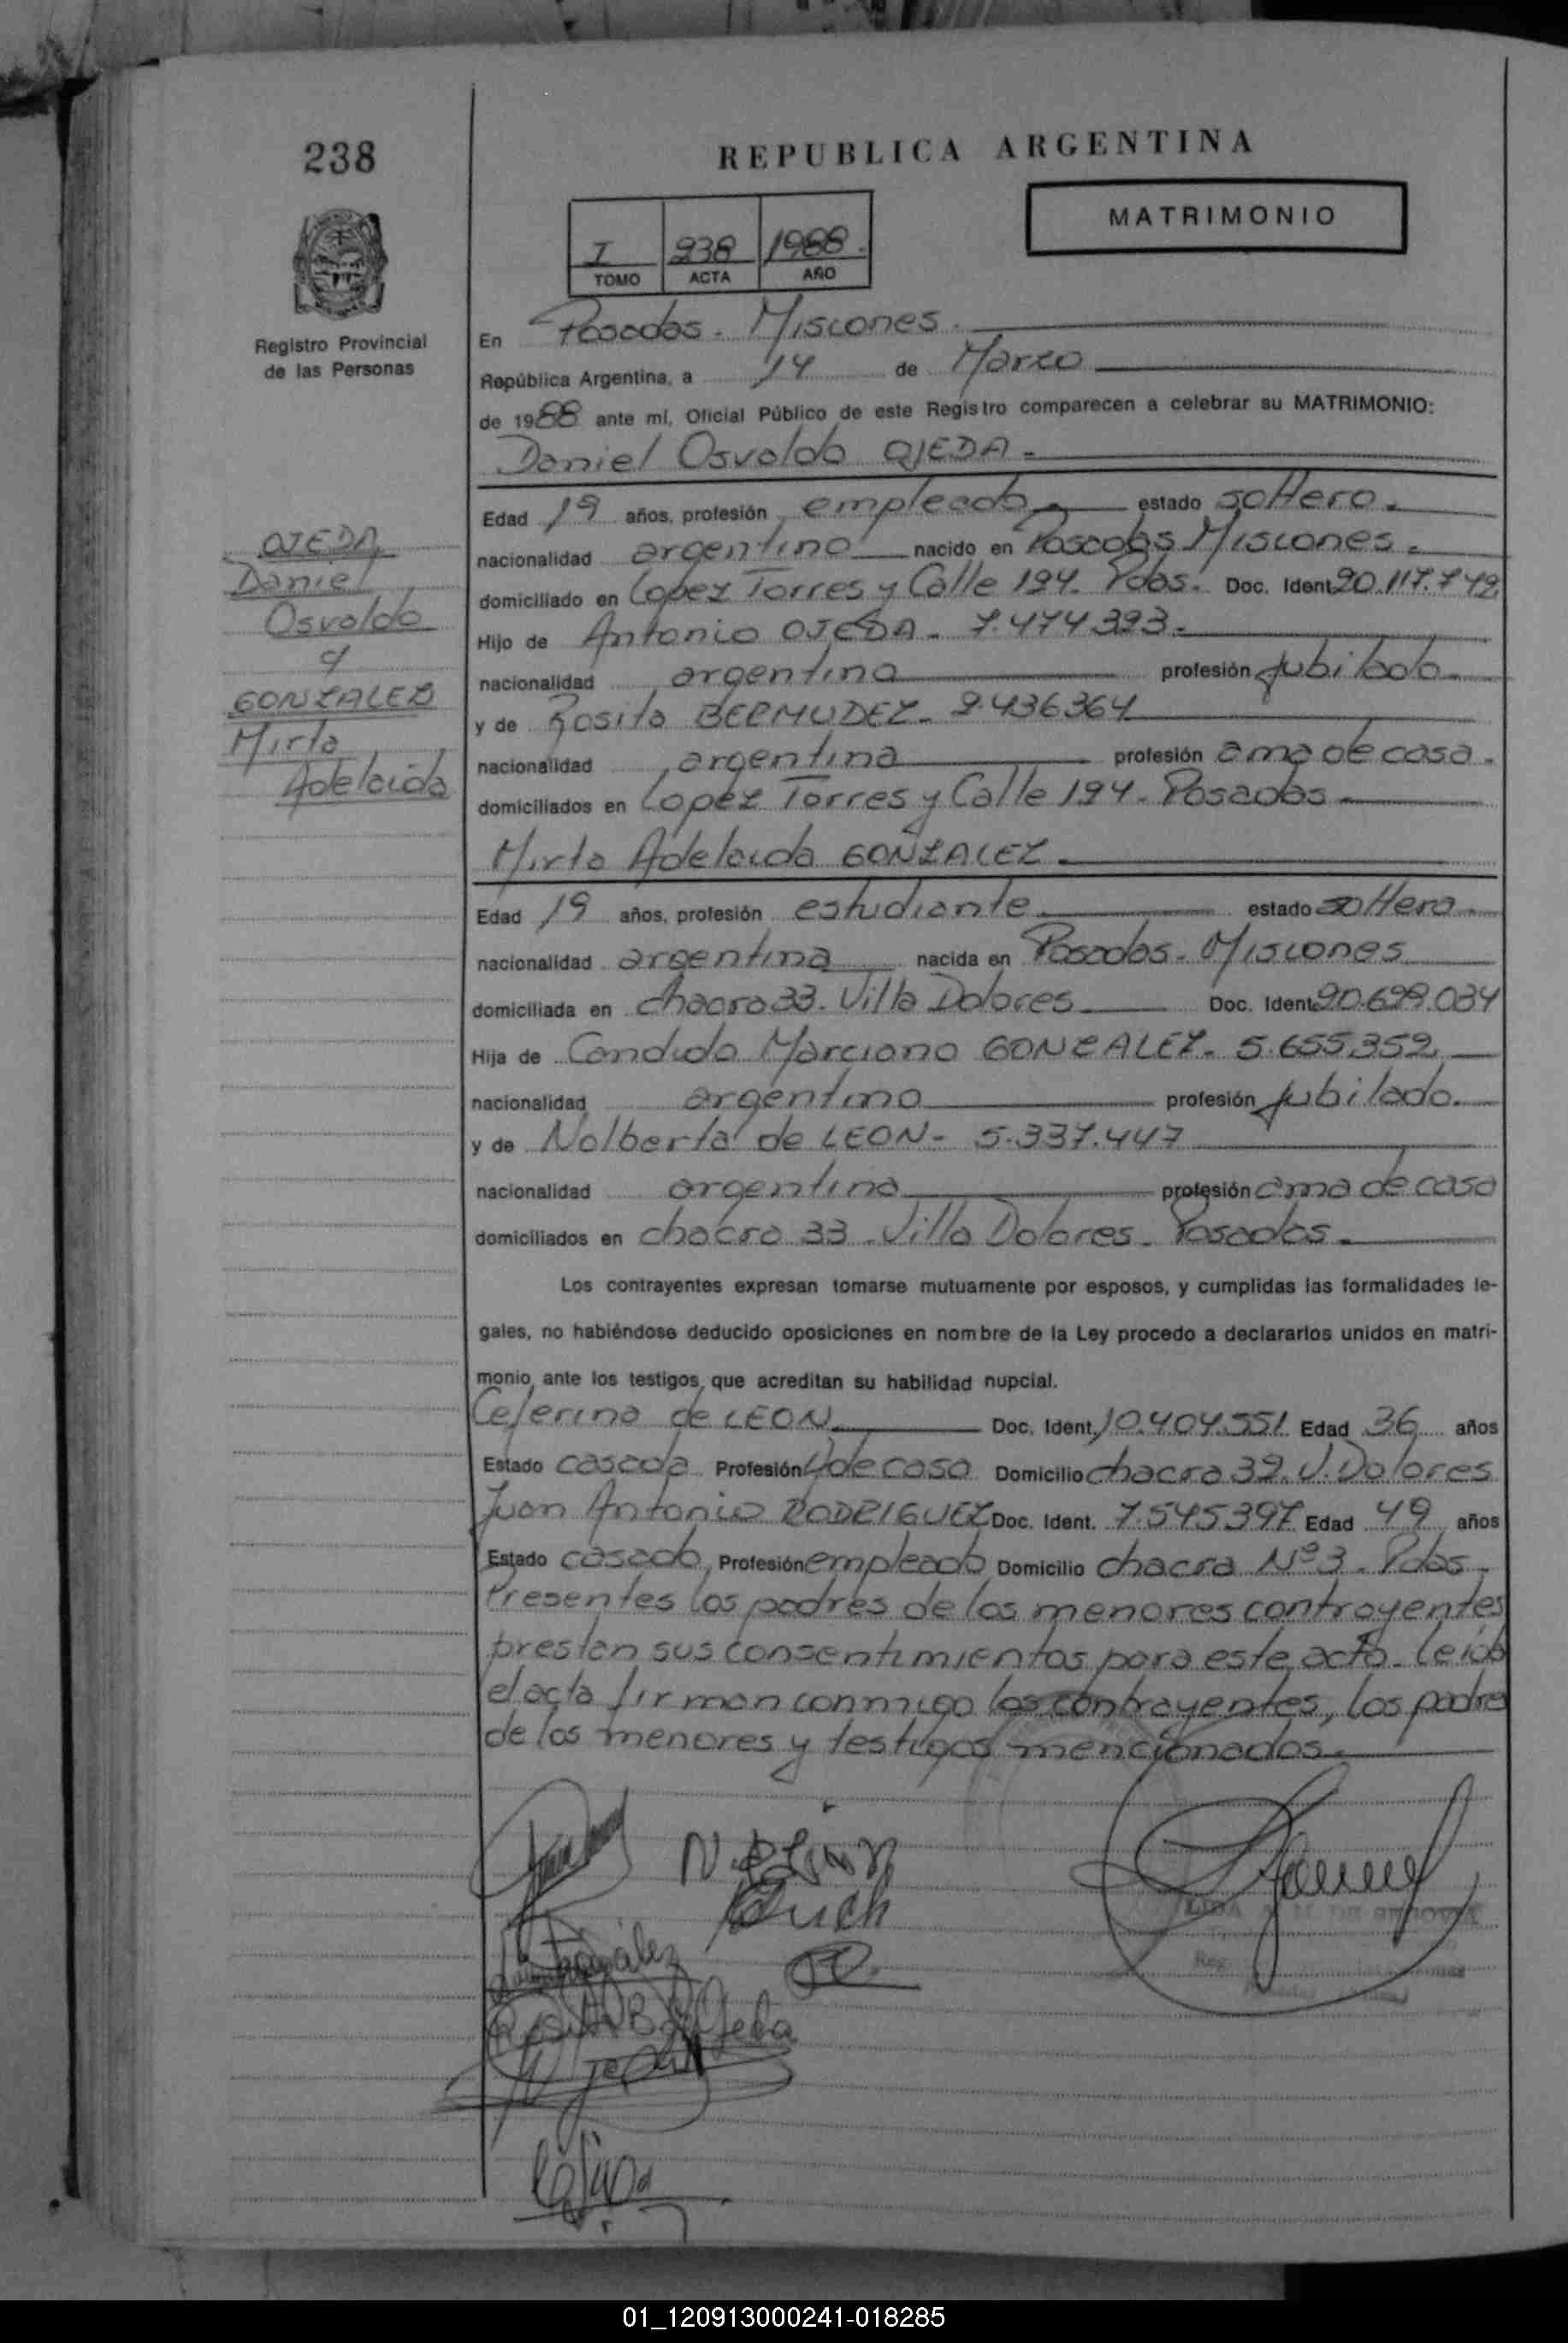 238
REPUBLICA ARGENTINA
MATRIMONIO
I 238 1988.
TOMO ACTA AÑO
Registro Provincial
de las Personas
En Posadas - Misiones.
República Argentina, a 14 de Marzo
de 1988 ante mí, Oficial Público de este Registro comparecen a celebrar su MATRIMONIO:
Daniel Osvaldo OJEDA -
OJEDA
Daniel
Osvaldo
y
GONZALEZ
Mirta
Adelaida
Edad 19 años, profesión empleado - estado soltero.
nacionalidad argentino nacido en Posadas Misiones -
domiciliado en Lopez Torres y Calle 194. Pdas. Doc. Ident. 20.117.742
Hijo de Antonio OJEDA - 7.474.393 -
nacionalidad argentina profesión jubilado.
y de Rosita BERMUDEZ - 2.436364
nacionalidad argentina profesión ama de casa.
domiciliados en Lopez Torres y Calle 194 - Posadas -
Mirta Adelaida GONZALEZ -
Edad 19 años, profesión estudiante estado soltera -
nacionalidad argentina nacida en Posadas - Misiones
domiciliada en chacra 33. Villa Dolores Doc. Ident. 20.699.034
Hija de Candido Marciano GONZALEZ - 5.655.352
nacionalidad argentino profesión jubilado.
y de Nolberta de LEON - 5.337.447
nacionalidad argentina profesión ama de casa
domiciliados en chacra 33 - Villa Dolores - Posadas -
Los contrayentes expresan tomarse mutuamente por esposos, y cumplidas las formalidades le-
gales, no habiéndose deducido oposiciones en nombre de la Ley procedo a declararlos unidos en matri-
monio, ante los testigos, que acreditan su habilidad nupcial.
Ceferina de LEON Doc. Ident. 10.404.551 Edad 36 años
Estado casada Profesión A de casa Domicilio chacra 32. V. Dolores
Juan Antonio RODRIGUEZ Doc. Ident. 7.545397 Edad 49 años
Estado casado, Profesión empleado Domicilio chacra Nº 3 - Pdas -
Presentes los padres de los menores contrayentes
prestan sus consentimientos para este acto - leido
el acta firman conmigo los contrayentes, los padres
de los menores y testigos mencionados -
01_120913000241-018285